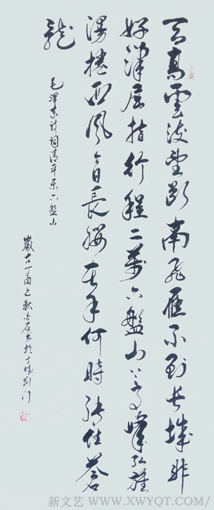 天高雲淡望斷南飛雁不到長城非
好漢屈指行程二萬六盤山上高峰紅旗
漫捲西風今日長纓在手何時縛住蒼
龍
毛澤東詞清平樂六盤山
歲在丁酉之秋
新文艺 WWW.XWYQT.COM